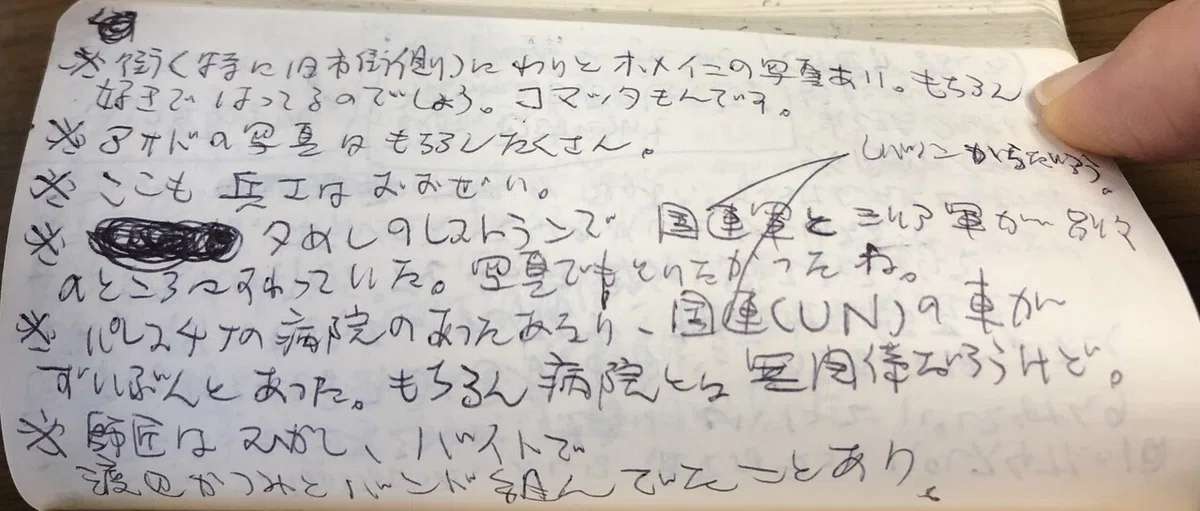 ※ 街（特に旧市街側）にわりとホメイニの写真あり。もちろん
好きではってるのでしょう。コマッタもんです。
※ アサドの写真はもちろんたくさん。
レバノンがちだろう。
※ ここも兵士はおおぜい。
※ 夕めしのレストランで 国連軍とシリア軍が 別々
のところにすわっていた。写真でもとりたかったね。
※ パレスチナの病院のあったあたり、国連(UN)の車が
ずいぶんとあった。もちろん病院とは無関係だろうけど。
※ 師匠はむかし、バイトで
渡辺かつみとバンド組んでたことあり。